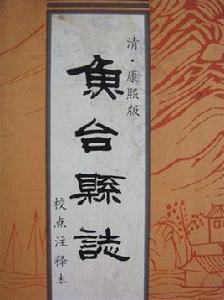 清·康熙版
魚台縣誌
校点注释本